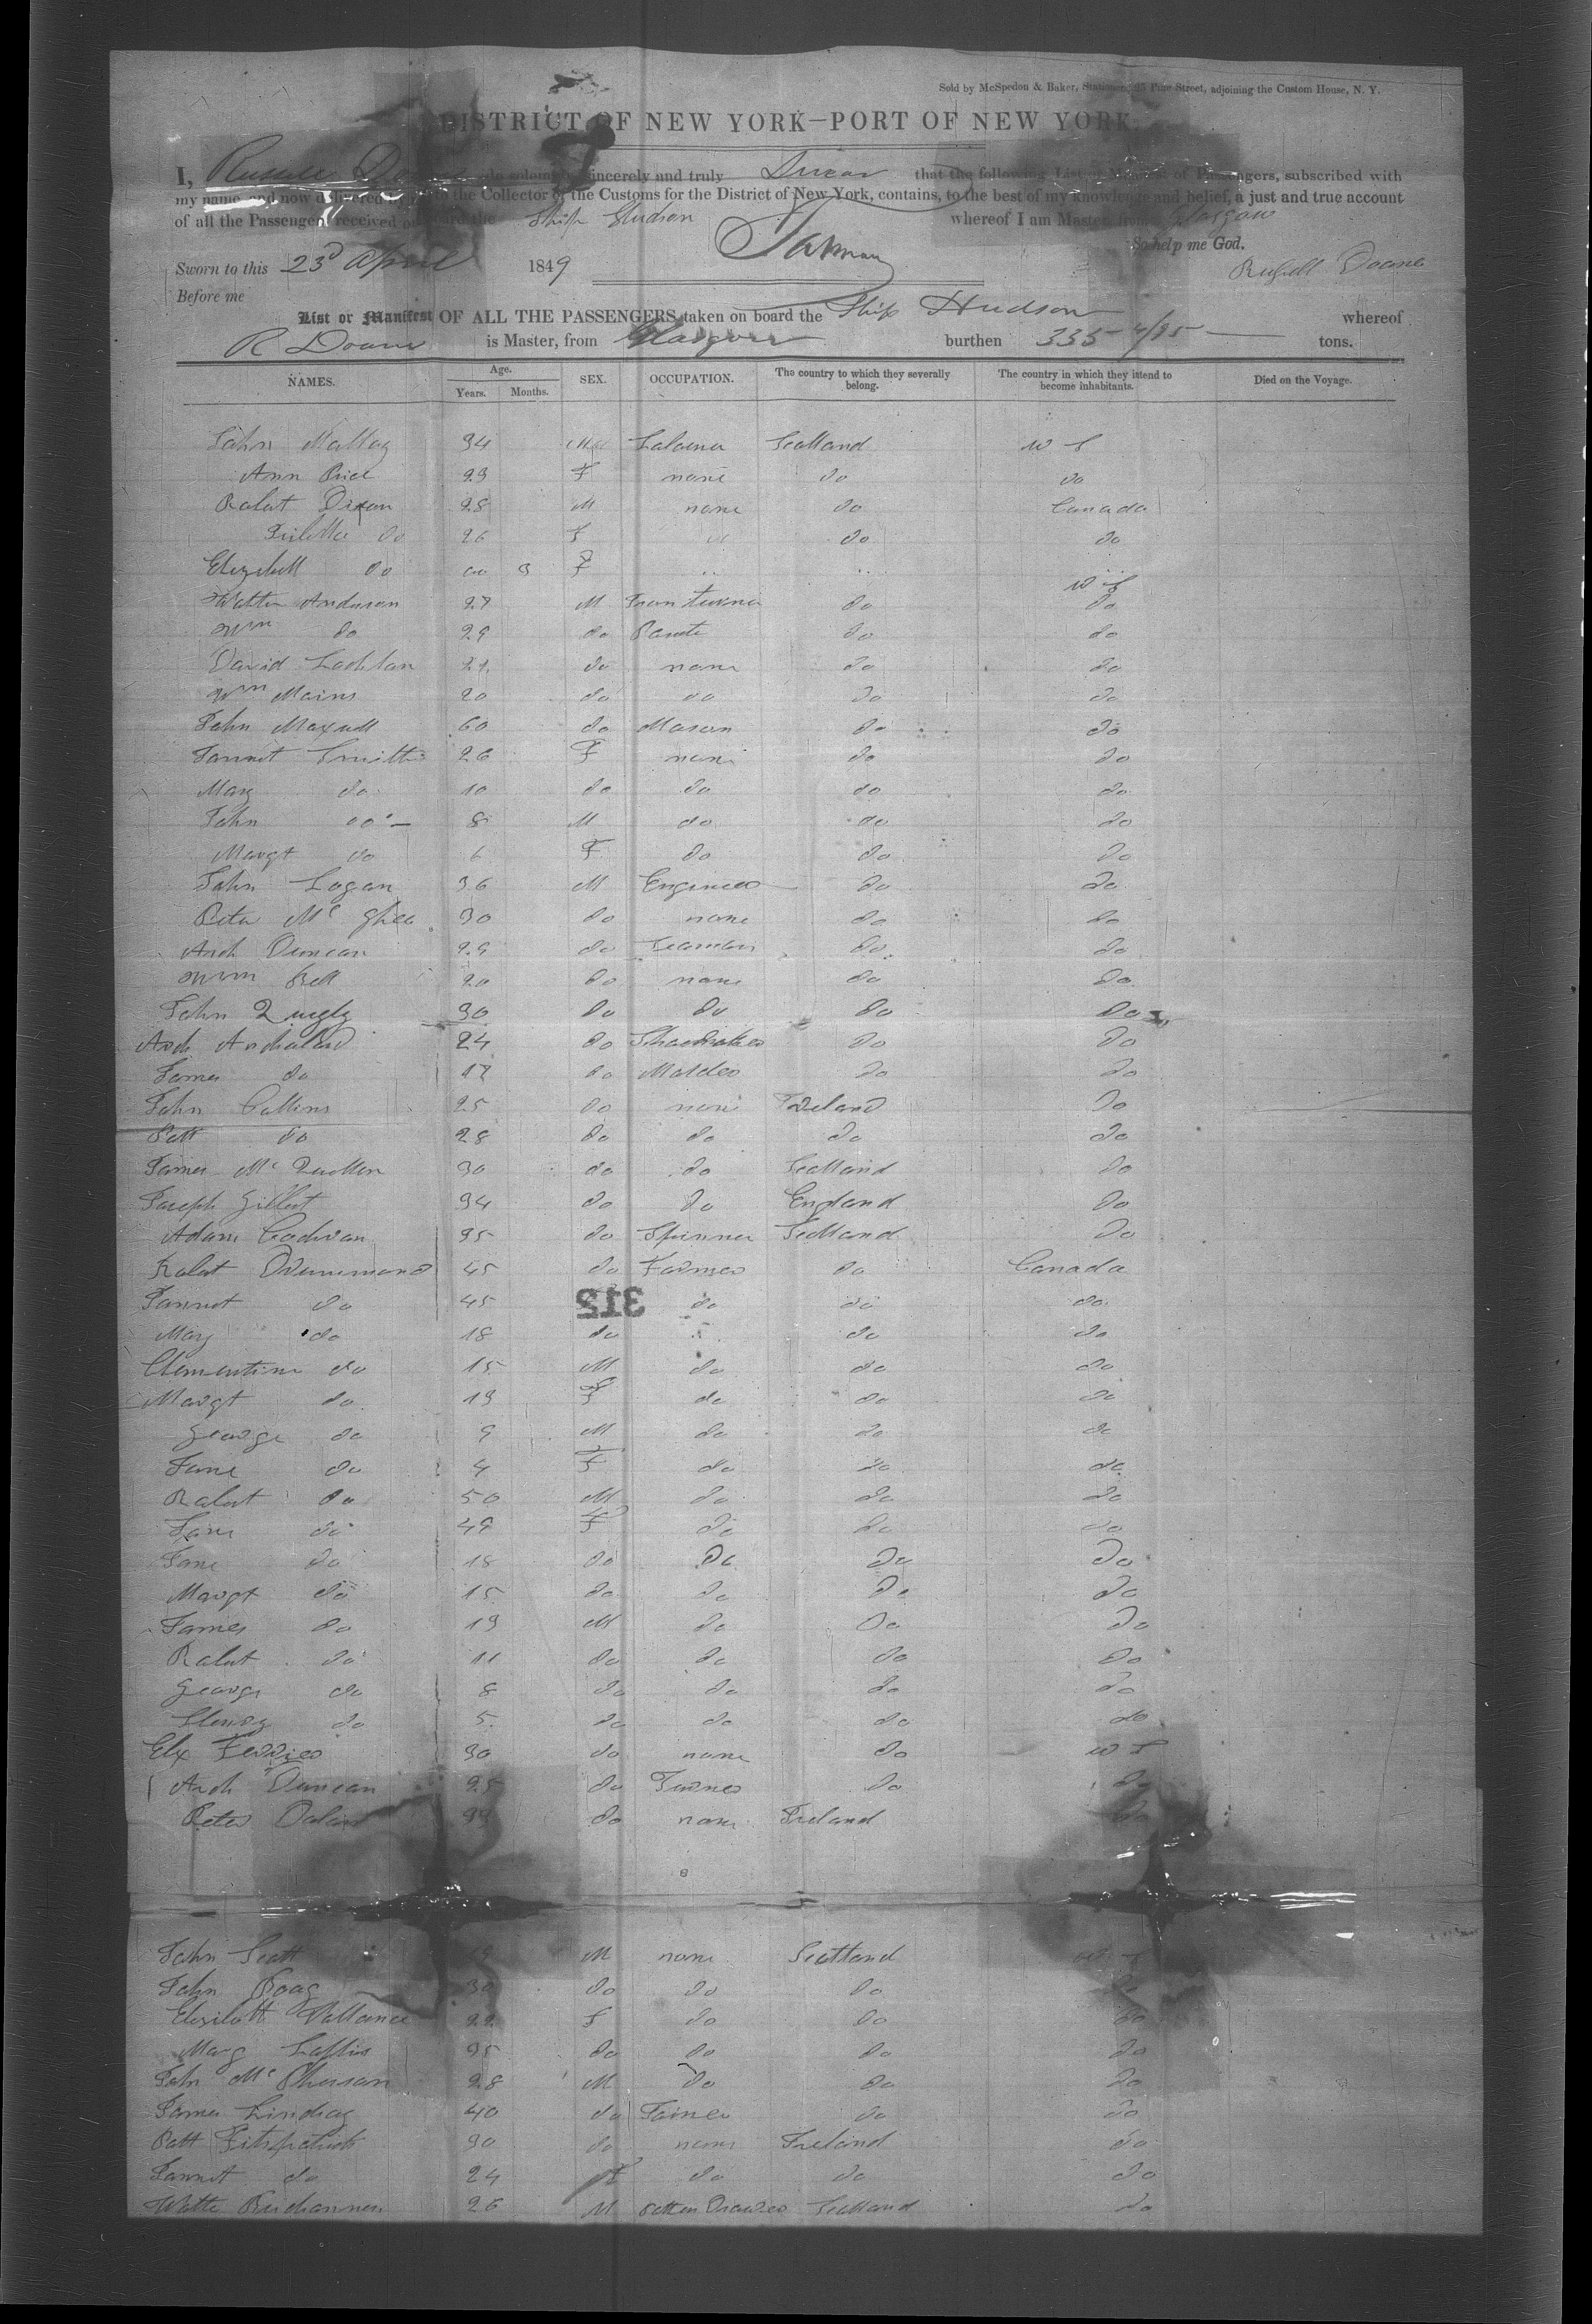 Sold by McSpedon & Baker, Stationers, 25 Pine Street, adjoining the Custom House, N. Y.
DISTRICT OF NEW YORK—PORT OF NEW YORK.
I, Russell Doane do solemnly, sincerely and truly Swear that the following List or Manifest of Passengers, subscribed with
my name, and now delivered to the Collector of the Customs for the District of New York, contains, to the best of my knowledge and belief, a just and true account
of all the Passengers received on board the Ship Hudson whereof I am Master, from Glasgow
So help me God.
Sworn to this 23d April 1849 Russell Doane
Before me
List or Manifest OF ALL THE PASSENGERS taken on board the Ship Hudson whereof
R Doane is Master, from Glasgow burthen 335 4/95 tons.
NAMES. Age. Years. Months. SEX. OCCUPATION. The country to which they severally belong. The country in which they intend to become inhabitants. Died on the Voyage.
John 34 Scotland
Ann Price 23 F none do do
Robt 28 M none do Canada
do 26 F do do
do 3 F
Walter Anderson 27 M do do
Wm do 29 do do do
David Lachlan do none do do
Wm Mains 20 do do do do
John Maxwell 60 do Mason do do
Jannet Smith 26 F none do do
Mary do 10 do do do do
John do 8 M do do do
Margt do 6 F do do do
John Logan 36 M Engineer do do
Peter Mc Ghee 30 do none do do
Arch Duncan 29 do do do
Wm Bell 20 do none do do
John 30 do do do do
Arch 24 do Shoemaker do do
James do 17 do Molder do do
John Collins 25 do none Ireland do
Patt do 28 do do do do
James 30 do do Scotland do
Joseph Gilbert 34 do do England do
Adam Cochran 35 do Spinner Scotland do
Robt Drummond 45 do Farmer do Canada
Jannet do 45 312 do do do
Mary do 18 do do do
Clementine do 15 M do do do
Margt do 13 F do do do
George do 9 M do do do
Jane do 4 F do do do
Robt do 50 M do do do
Jane do 49 F do do do
Jane do 18 do do do do
Margt do 15 do do do do
James do 13 M do do do
Robt do 11 do do do do
George do 8 do do do do
Henry do 5 do do do do
30 do none do
Arch Duncan 25 do Turner do do
Peter 34 do none Ireland do
John Scott M none Scotland
John 30 do do do do
22 F do do do
35 do do do do
John Mc Pherson 28 M do do do
James Lindsay 40 do do do
Patt Fitzpatrick 30 do none Ireland do
Jannet do 24 F do do do
Buchannan 26 M Scotland do